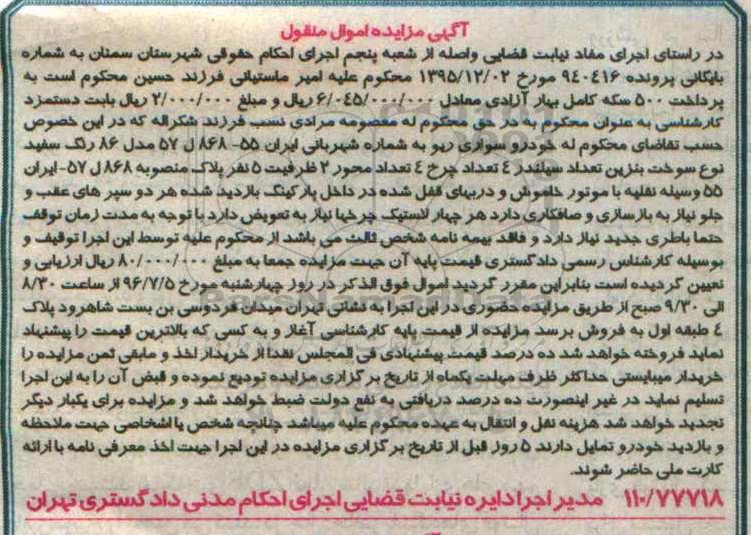 آگهی مزایده اموال منقول
در راستای اجرای مفاد نیابت قضایی واصله از شعبه پنجم اجرای احکام حقوقی شهرستان سمنان به شماره
بایگانی پرونده ۹٤۰٤۱۶ مورخ ۱۳۹۵/۱۲/۰۲ محکوم علیه امیر ماستیانی فرزند حسین محکوم است به
پرداخت ۵۰۰ سکه کامل بهار آزادی معادل ۶/۰٤۵/۰۰۰/۰۰۰ ریال و مبلغ ۲/۰۰۰/۰۰۰ ریال بابت دستمزد
کارشناسی به عنوان محکوم به در حق محکوم له معصومه مرادی نسب فرزند شکراله که در این خصوص
حسب تقاضای محکوم له خودرو سواری ریو به شماره شهربانی ایران ۵۵- ۸۶۸ ل ۵۷ مدل ۸۶ رنگ سفید
نوع سوخت بنزین تعداد سیلندر ٤ تعداد چرخ ٤ تعداد محور ۲ ظرفیت ۵ نفر پلاک منصوبه ۸۶۸ ل ۵۷- ایران
۵۵ وسیله نقلیه با موتور خاموش و دربهای قفل شده در داخل پارکینگ بازدید شده هر دو سپر های عقب و
جلو نیاز به بازسازی و صافکاری دارد هر چهار لاستیک چرخها نیاز به تعویض دارد با توجه به مدت زمان توقف
حتما باطری جدید نیاز دارد و فاقد بیمه نامه شخص ثالث می باشد از محکوم علیه توسط این اجرا توقیف و
بوسیله کارشناس رسمی دادگستری قیمت پایه آن جهت مزایده جمعا به مبلغ ۸۰/۰۰۰/۰۰۰ ریال ارزیابی و
تعیین گردیده است بنابراین مقرر گردید اموال فوق الذکر در روز چهارشنبه مورخ ۹۶/۷/۵ از ساعت ۸/۳۰
الی ۹/۳۰ صبح از طریق مزایده حضوری در این اجرا به نشانی تهران میدان فردوسی بن بست شاهرود پلاک
٤ طبقه اول به فروش برسد مزایده از قیمت پایه کارشناسی آغاز و به کسی که بالاترین قیمت را پیشنهاد
نماید فروخته خواهد شد ده درصد قیمت پیشنهادی فی المجلس نقدا از خریدار اخذ و مابقی ثمن مزایده را
خریدار میبایستی حداکثر ظرف مهلت یکماه از تاریخ برگزاری مزایده تودیع نموده و قبض آن را به این اجرا
تسلیم نماید در غیر اینصورت ده درصد دریافتی به نفع دولت ضبط خواهد شد و مزایده برای یکبار دیگر
تجدید خواهد شد هزینه نقل و انتقال به عهده محکوم علیه میباشد چنانچه شخص یا اشخاصی جهت ملاحظه
و بازدید خودرو تمایل دارند ۵ روز قبل از تاریخ برگزاری مزایده در این اجرا جهت اخذ معرفی نامه با ارائه
کارت ملی حاضر شوند.
۱۱۰/۷۷۷۱۸ مدیر اجرا دایره نیابت قضایی اجرای احکام مدنی دادگستری تهران